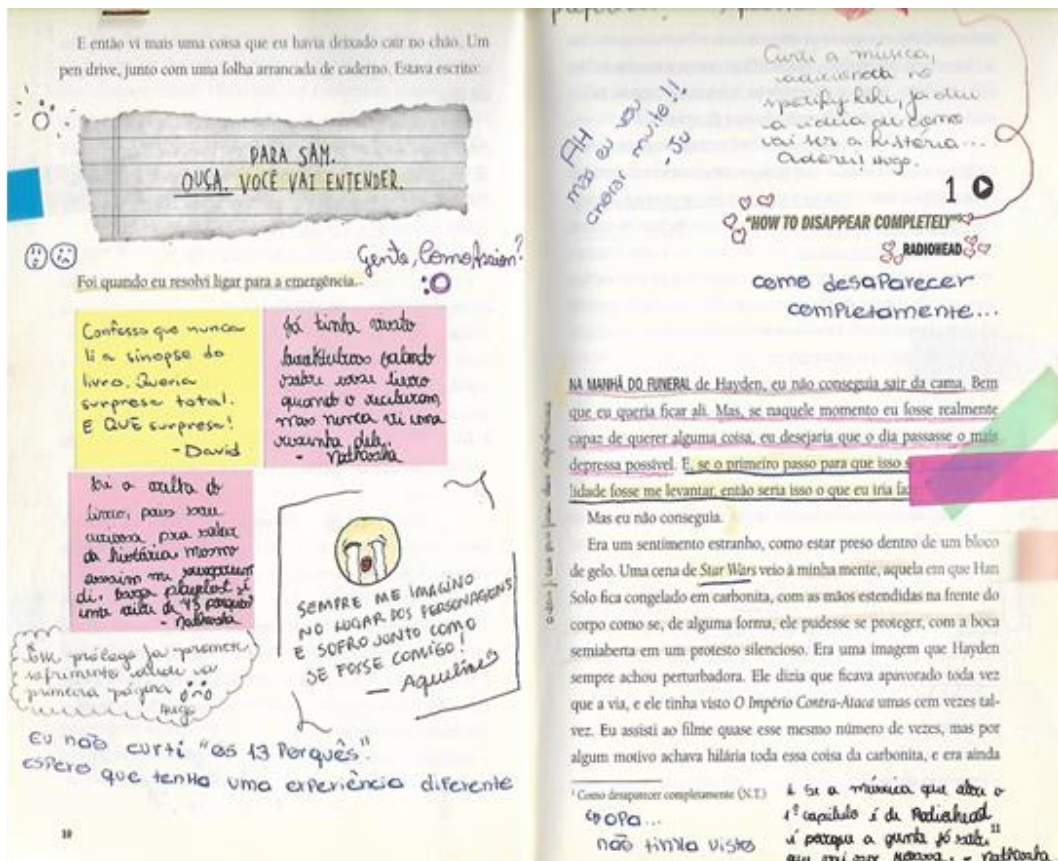 E então vi mais uma coisa que eu havia deixado cair no chão. Um
pen drive, junto com uma folha arrancada de caderno. Estava escrito:
PARA SAM.
OUÇA. VOCÊ VAI ENTENDER.
Gente, como assim?
:O
Foi quando eu resolvi ligar para a emergência.
Confesso que nunca
li a sinopse do
livro. Queria
surpresa total.
E QUE surpresa!
- David
Já tinha visto
booktubers falando
sobre esse livro
quando o receberam
mas nunca vi uma
resenha dele.
- Nathasha
livro, para
curiosa pra saber
da história mesmo
assim me
- Nathasha
SEMPRE ME IMAGINO
NO LUGAR DOS PERSONAGENS
E SOFRO JUNTO COMO
SE FOSSE COMIGO!
— Aqueline
prólogo já promete
sofrimento desde a
primeira página
Hugo
Eu não curti "os 13 Porquês".
espero que tenha uma experiência diferente
10
AH
mas eu vou
chorar muito!!!
- Ju
Curti a música,
adicionada no
spotify hihi, já deu
a ideia de como
vai ser a história...
Adorei! Hugo.
1
"HOW TO DISAPPEAR COMPLETELY"¹
RADIOHEAD
como desaparecer
completamente...
NA MANHÃ DO FUNERAL de Hayden, eu não conseguia sair da cama. Bem
que eu queria ficar ali. Mas, se naquele momento eu fosse realmente
capaz de querer alguma coisa, eu desejaria que o dia passasse o mais
depressa possível. E, se o primeiro passo para que isso
lidade fosse me levantar, então seria isso o que eu iria
Mas eu não conseguia.
Era um sentimento estranho, como estar preso dentro de um bloco
de gelo. Uma cena de Star Wars veio à minha mente, aquela em que Han
Solo fica congelado em carbonita, com as mãos estendidas na frente do
corpo como se, de alguma forma, ele pudesse se proteger, com a boca
semiaberta em um protesto silencioso. Era uma imagem que Hayden
sempre achou perturbadora. Ele dizia que ficava apavorado toda vez
que a via, e ele tinha visto O Império Contra-Ataca umas cem vezes tal-
vez. Eu assisti ao filme quase esse mesmo número de vezes, mas por
algum motivo achava hilária toda essa coisa da carbonita, e era ainda
¹ Como desaparecer completamente (N.T.)
OPA...
não tinha visto
E se a música que abre o
1º capítulo é de Radiohead
é porque a gente já sabe
que vai - Nathasha
11